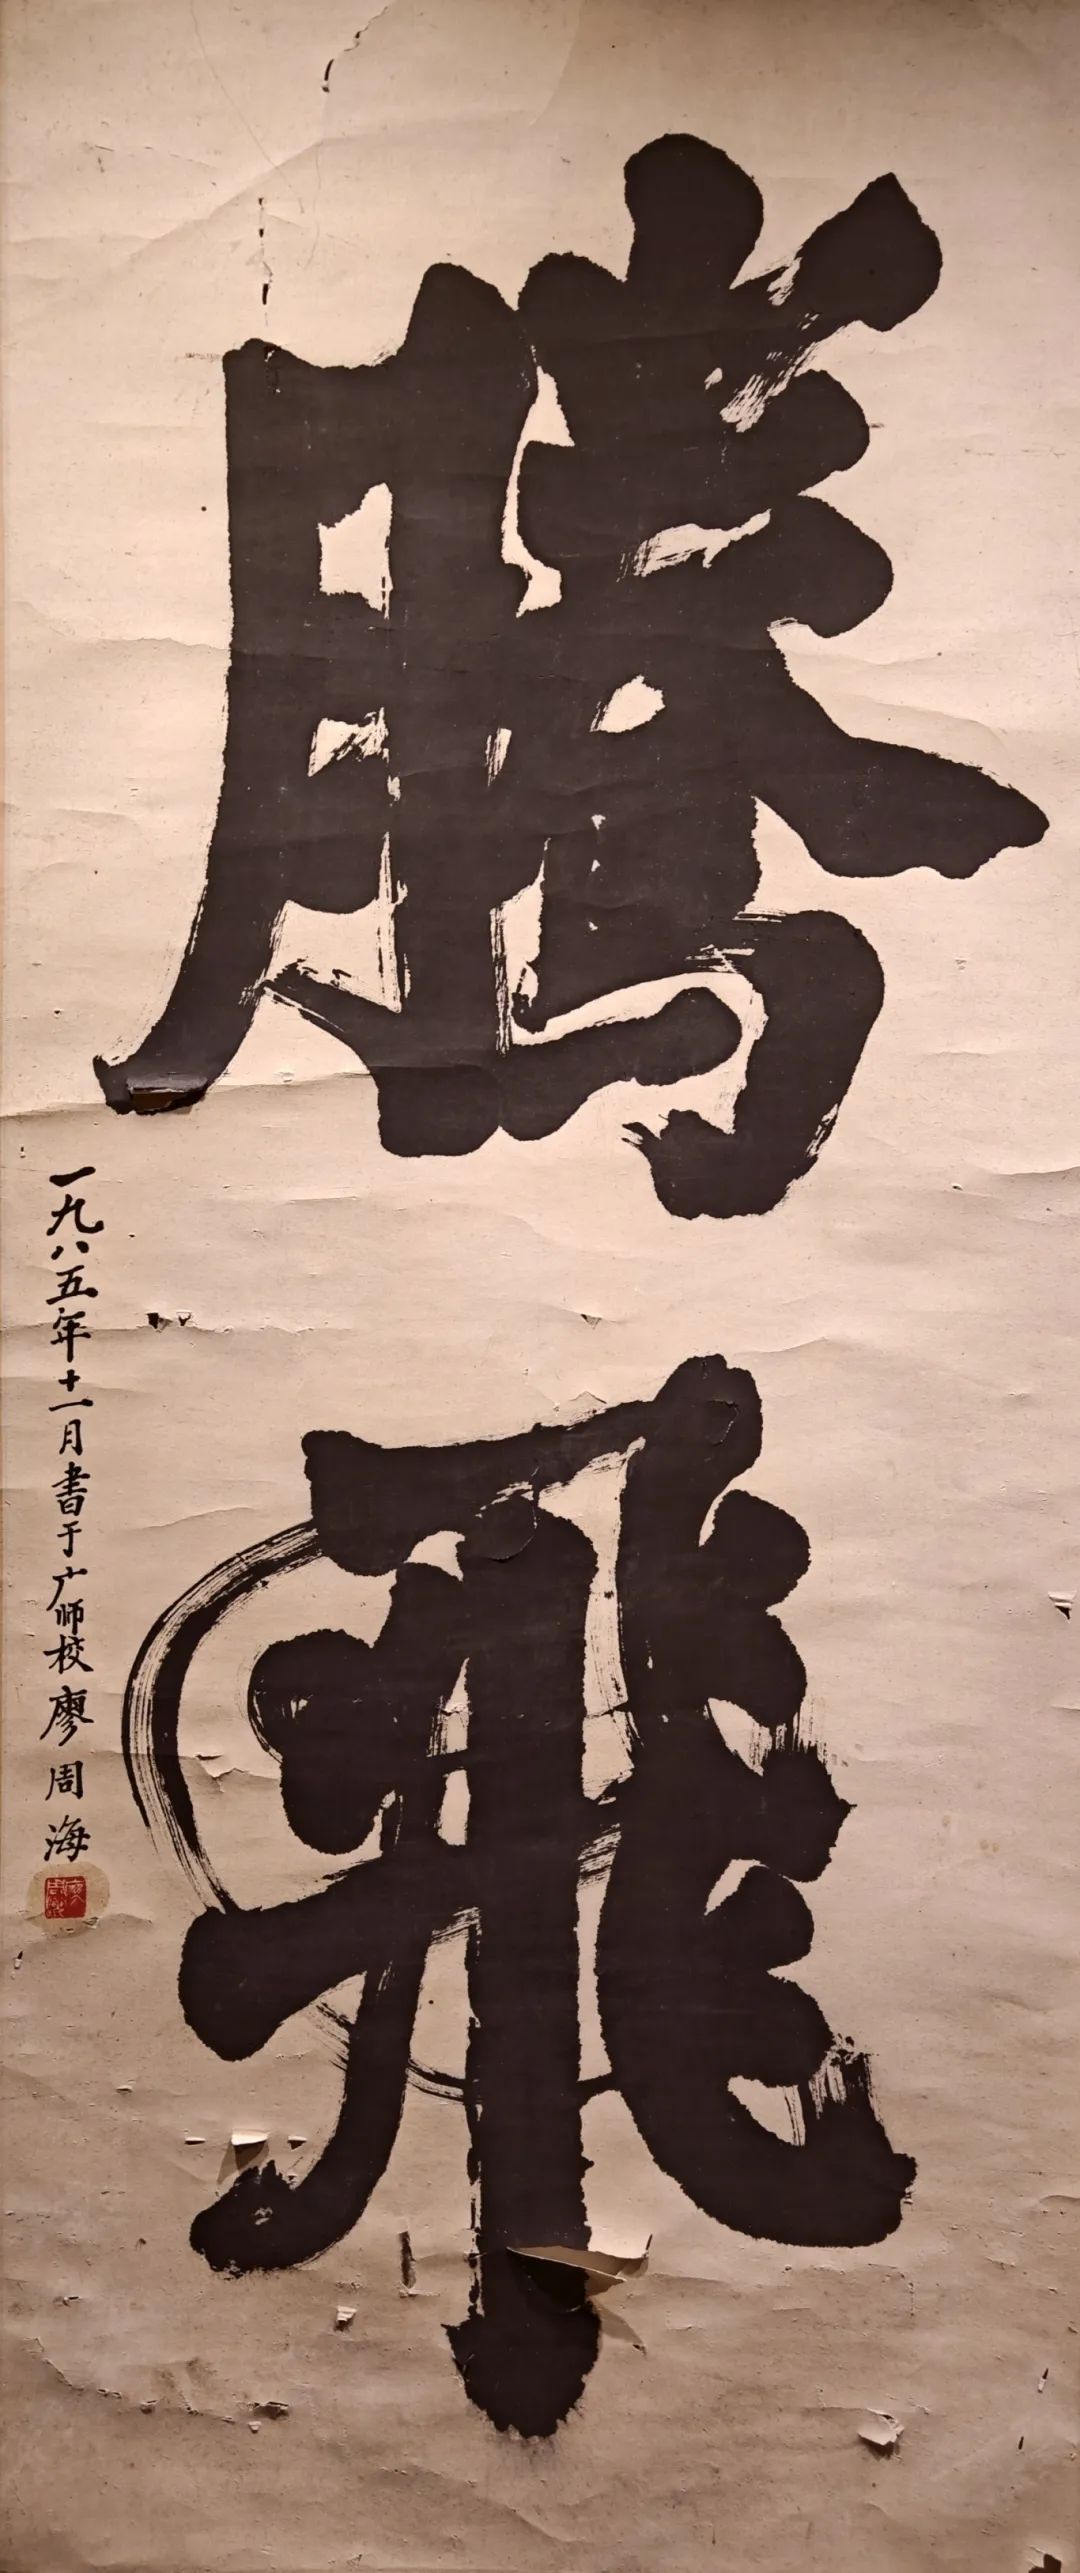 騰飛
一九八五年十一月書于广师校廖周海